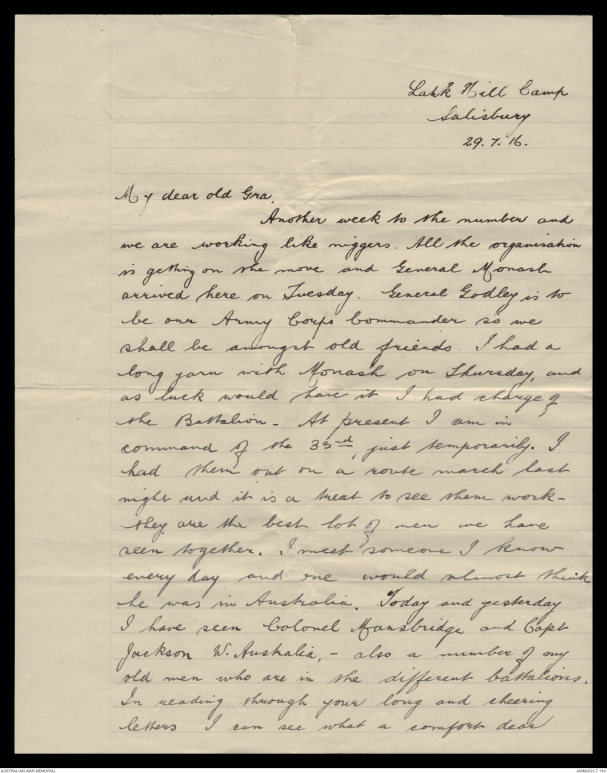 Lark Hill Camp
Salisbury
29.7.16.
My dear old Gra,
Another week to the number and
we are working like niggers. All the organisation
is getting on the move and General Monash
arrived here on Tuesday. General Godley is to
be our Army Corps Commander so we
shall be amongst old friends. I had a
long yarn with Monash on Thursday, and
as luck would have it I had charge of
the Battalion - At present I am in
command of the 33rd, just temporarily. I
had them out on a route march last
night and it is a treat to see them work -
they are the best lot of men we have
seen together. I meet someone I know
every day and one would almost think
he was in Australia. Today and yesterday
I have seen Colonel Mansbridge and Capt
Jackson W. Australia, - also a number of my
old men who are in the different battalions.
In reading through your long and cheering
letters I can see what a comfort dear
AUSTRALIAN WAR MEMORIAL